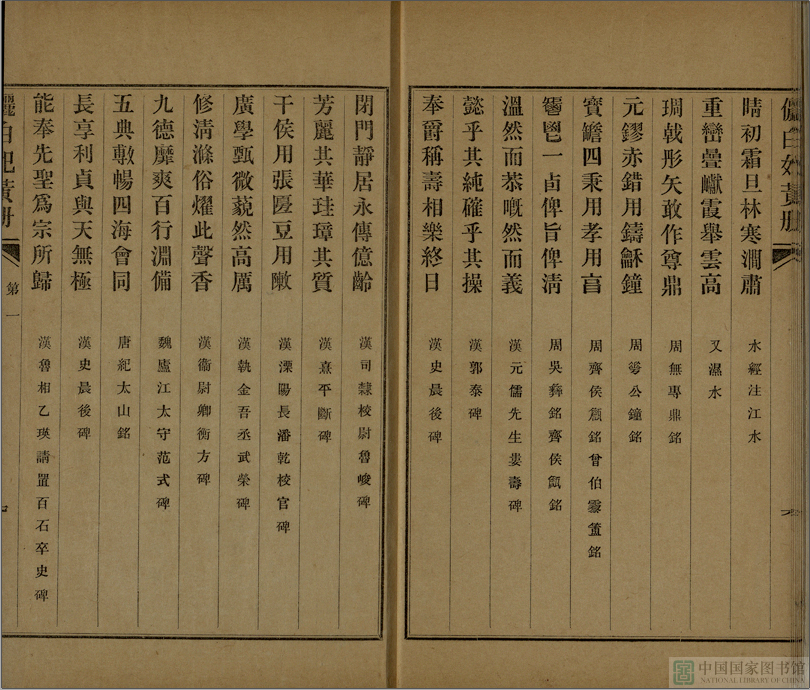 儷白妃黃册
晴初霜旦林寒澗肅 水經注江水
重巒疊巘霞舉雲高 又濕水
琱戟彤矢敢作尊鼎 周無專鼎銘
元鏐赤錯用鑄龢鐘 周公鐘銘
寶簠四秉用孝用亯 周齊侯銘曾伯簠銘
一卣俾旨俾清 周吳彝銘齊侯甔銘
溫然而恭慨然而義 漢元儒先生婁壽碑
懿乎其純確乎其操 漢郭泰碑
奉爵稱壽相樂終日 漢史晨後碑
閉門靜居永傳億齡 漢司隸校尉魯峻碑
芳麗其華珪璋其質 漢熹平斷碑
干侯用張籩豆用敶 漢溧陽長潘乾校官碑
廣學甄微藐然高厲 漢執金吾丞武榮碑
修清滌俗燿此聲香 漢衞尉卿衡方碑
九德靡爽百行淵備 魏廬江太守范式碑
五典敷暢四海會同 唐紀太山銘
長享利貞與天無極 漢史晨後碑
能奉先聖爲宗所歸 漢魯相乙瑛請置百石卒史碑
儷白妃黃册 第一
中国国家图书馆
NATIONAL LIBRARY OF CHINA